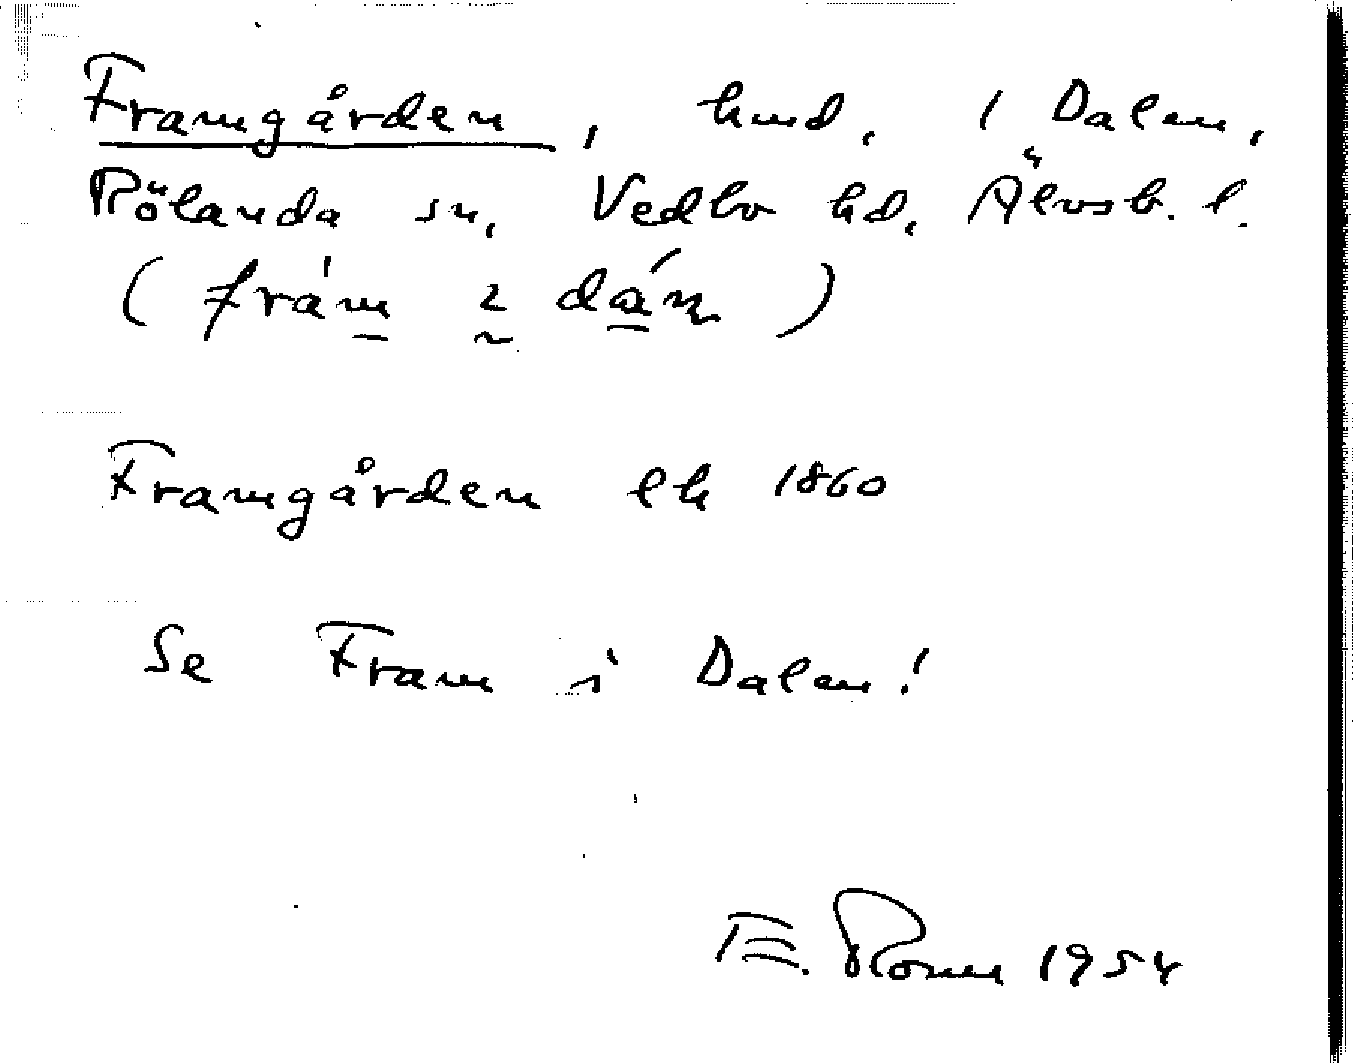 Framgården, hmd. i Dalen,
Rölanda sn, Vedbo hd, Älvsb. l.
(fràm ɩ dán)
Framgården ek 1860
Se Fram i Dalen!
E. Rosell 1954